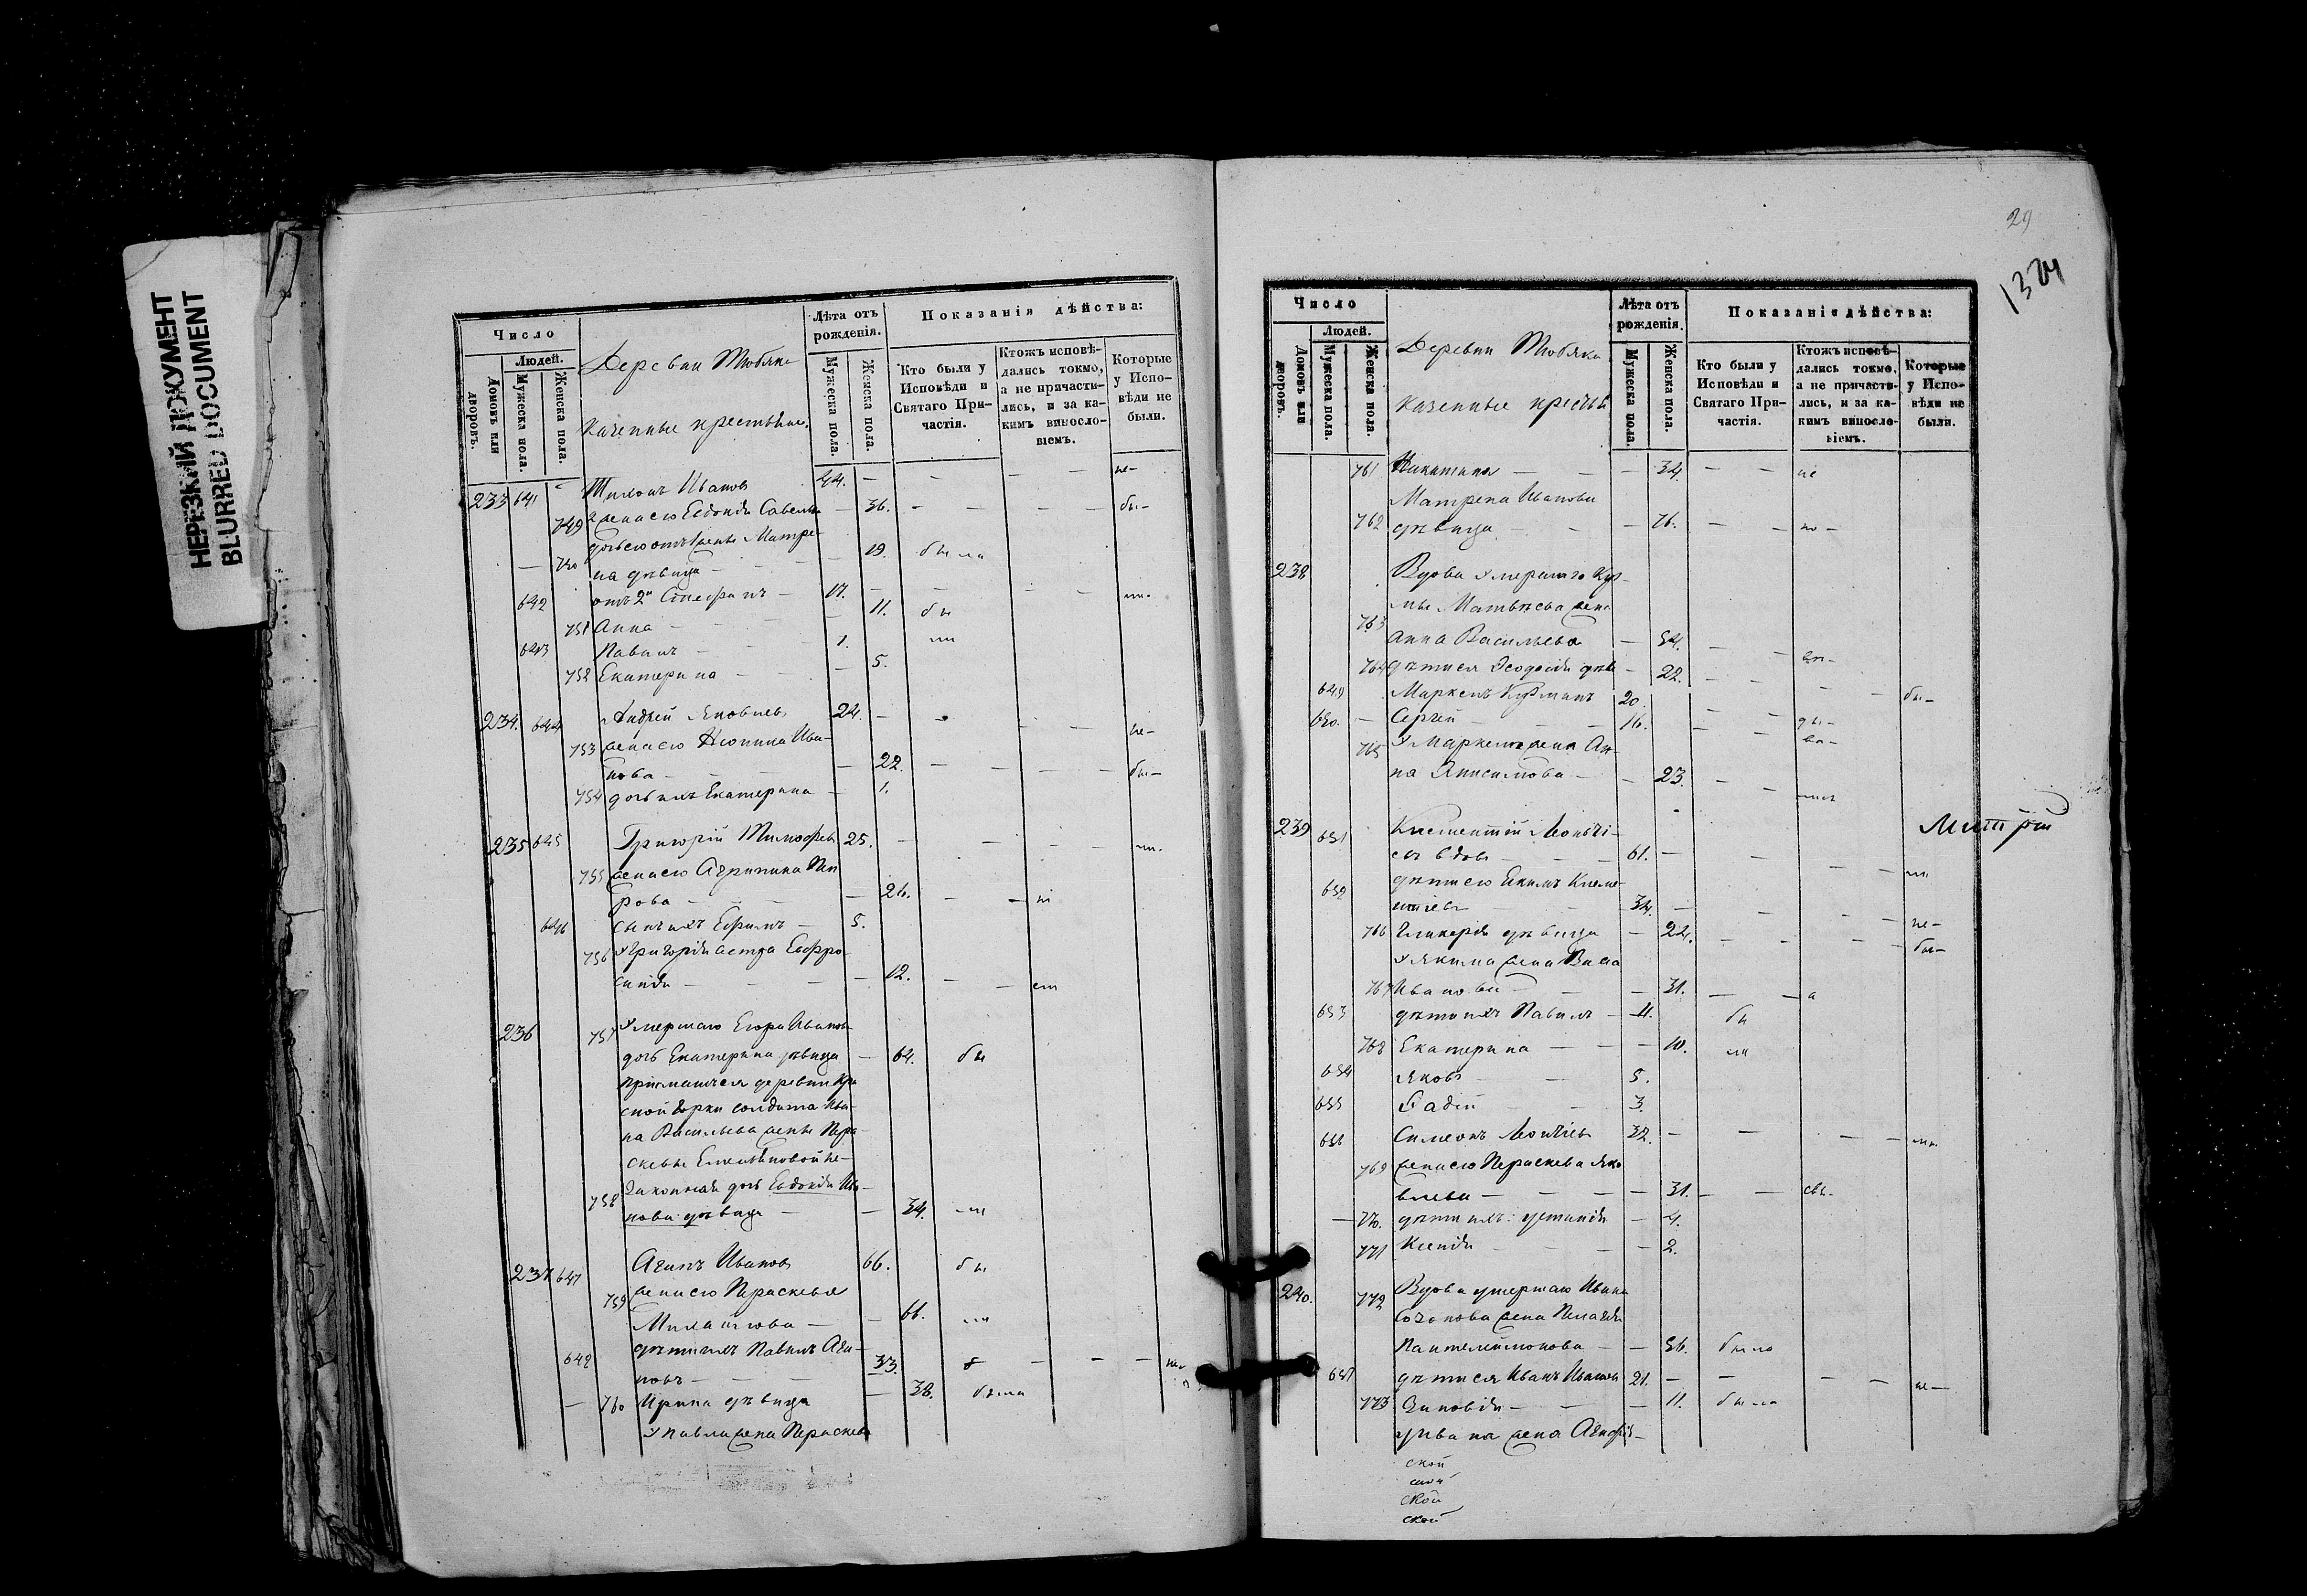 НЕРЕЗКИЙ ДОКУМЕНТ
BLURRED DOCUMENT
Число
Людей.
Домовъ или дворовъ.
Мужеска пола.
Женска пола.
Деревни Тюбяки
Казенные крестьяне
Лѣта отъ рожденія.
Мужеска пола.
Женска пола.
Показанія дѣйства:
Кто были у Исповѣди и Святаго Причастія.
Ктожъ исповѣдались токмо, а не причастились, и за какимъ винословіемъ.
Которые у Исповѣди не были.
233 641 Тихонъ Ивановъ 44. — — — — не—
749 жена его Евдокія Савельева — 36. — — — — бы—
дочь его отъ 1 жены Матре-
— 750 на дѣвица — — 19. была
642 отъ 2й Стефанъ — 17. — — — —
751 Анна — — — 11. бы
643 Павелъ — — 1. ли
752 Екатерина — — — 5.
234. 644 Андрей Яковлевъ 24. — — — — не—
753 жена его Неонила Ива-
нова — — — — 22. — — — — бы—
754 дочь ихъ Екатерина — 1.
235 645 Григорій Тимофеевъ 25. — — — — ли.
755 жена его Агрипина Пет
рова — — — — 26. — — —
646 сынъ ихъ Ефимъ — 5.
756 у Григорія сестра Евфро-
синія — — — — 12. — —
236 757 Умершаго Егора Иванова
дочь Екатерина дѣвица — 64. бы
сной Горки солдата Ива-
на Васильева жены Пара-
скевы Емельяновой не-
758 законная дочь Евдокія Ива-
нова дѣвица — — 34. — ли
237 647 Агапъ Ивановъ 66. бы
759 жена его Параскевья
Михайлова — — 66. ли
648 дѣти ихъ Павелъ Ага-
повъ — — — 33. — — — не
— 760 Ирина дѣвица — 38. была
у Павла жена Параскева
29
Число
Людей.
Домовъ или дворовъ.
Мужеска пола.
Женска пола.
Деревни Тюбяки
Казенные крестья
Лѣта отъ рожденія.
Мужеска пола.
Женска пола.
Показанія дѣйства:
Кто были у Исповѣди и Святаго Причастія.
Ктожъ исповѣдались токмо, а не причастились, и за какимъ винословіемъ.
Которые у Исповѣди не были.
761 Никитина — — — 34. — — не
Матрена Иванова
762 дѣвица — — — 76. — —
238 Вдова умершаго Кузь-
мы Матвѣева жена
763 Анна Васильева — 54. — —
764 дѣти ея Ѳеодосія дѣв — 22. — — — —
649 Маркелъ Кузминъ 20. — — бы—
650. — Сергей — — — 16. — —
765 у Маркела жена Ан-
на Анисимова — — 23. — —
239 651 Клементій Леонтi-
евъ вдовъ — — — 61. — — — — ли
652 дѣти его Екимъ Клеме-
нтіевъ — — 34. — — — — не—
766 Гликерія дѣвица — 24. — — — — бы—
у Якима жена Васса
767 Иванова — — — 31. — — а
653 дѣти ихъ Павелъ — 11. бы
768 Екатерина — — — 10. ли
654 Яковъ — — 5.
655 Фадѣй — — 3.
656 Симеонъ Леонтіевъ 32. — — — — ли.
769 жена его Параскева Яко
влева — — — — 31. — —
— 770. дѣти ихъ: Устинія — 4.
771 Ксенія — — — — 2.
240. 772 Вдова умершаго Ивана
Созонова жена Пелагія
Пантелеймонова — — 56. была
657 дѣти ея Иванъ Ивановъ 21. — — — — не—
773 Зиновія — — — 11. была
у Ивана жена Агафія—
ской
ской
ской
ской